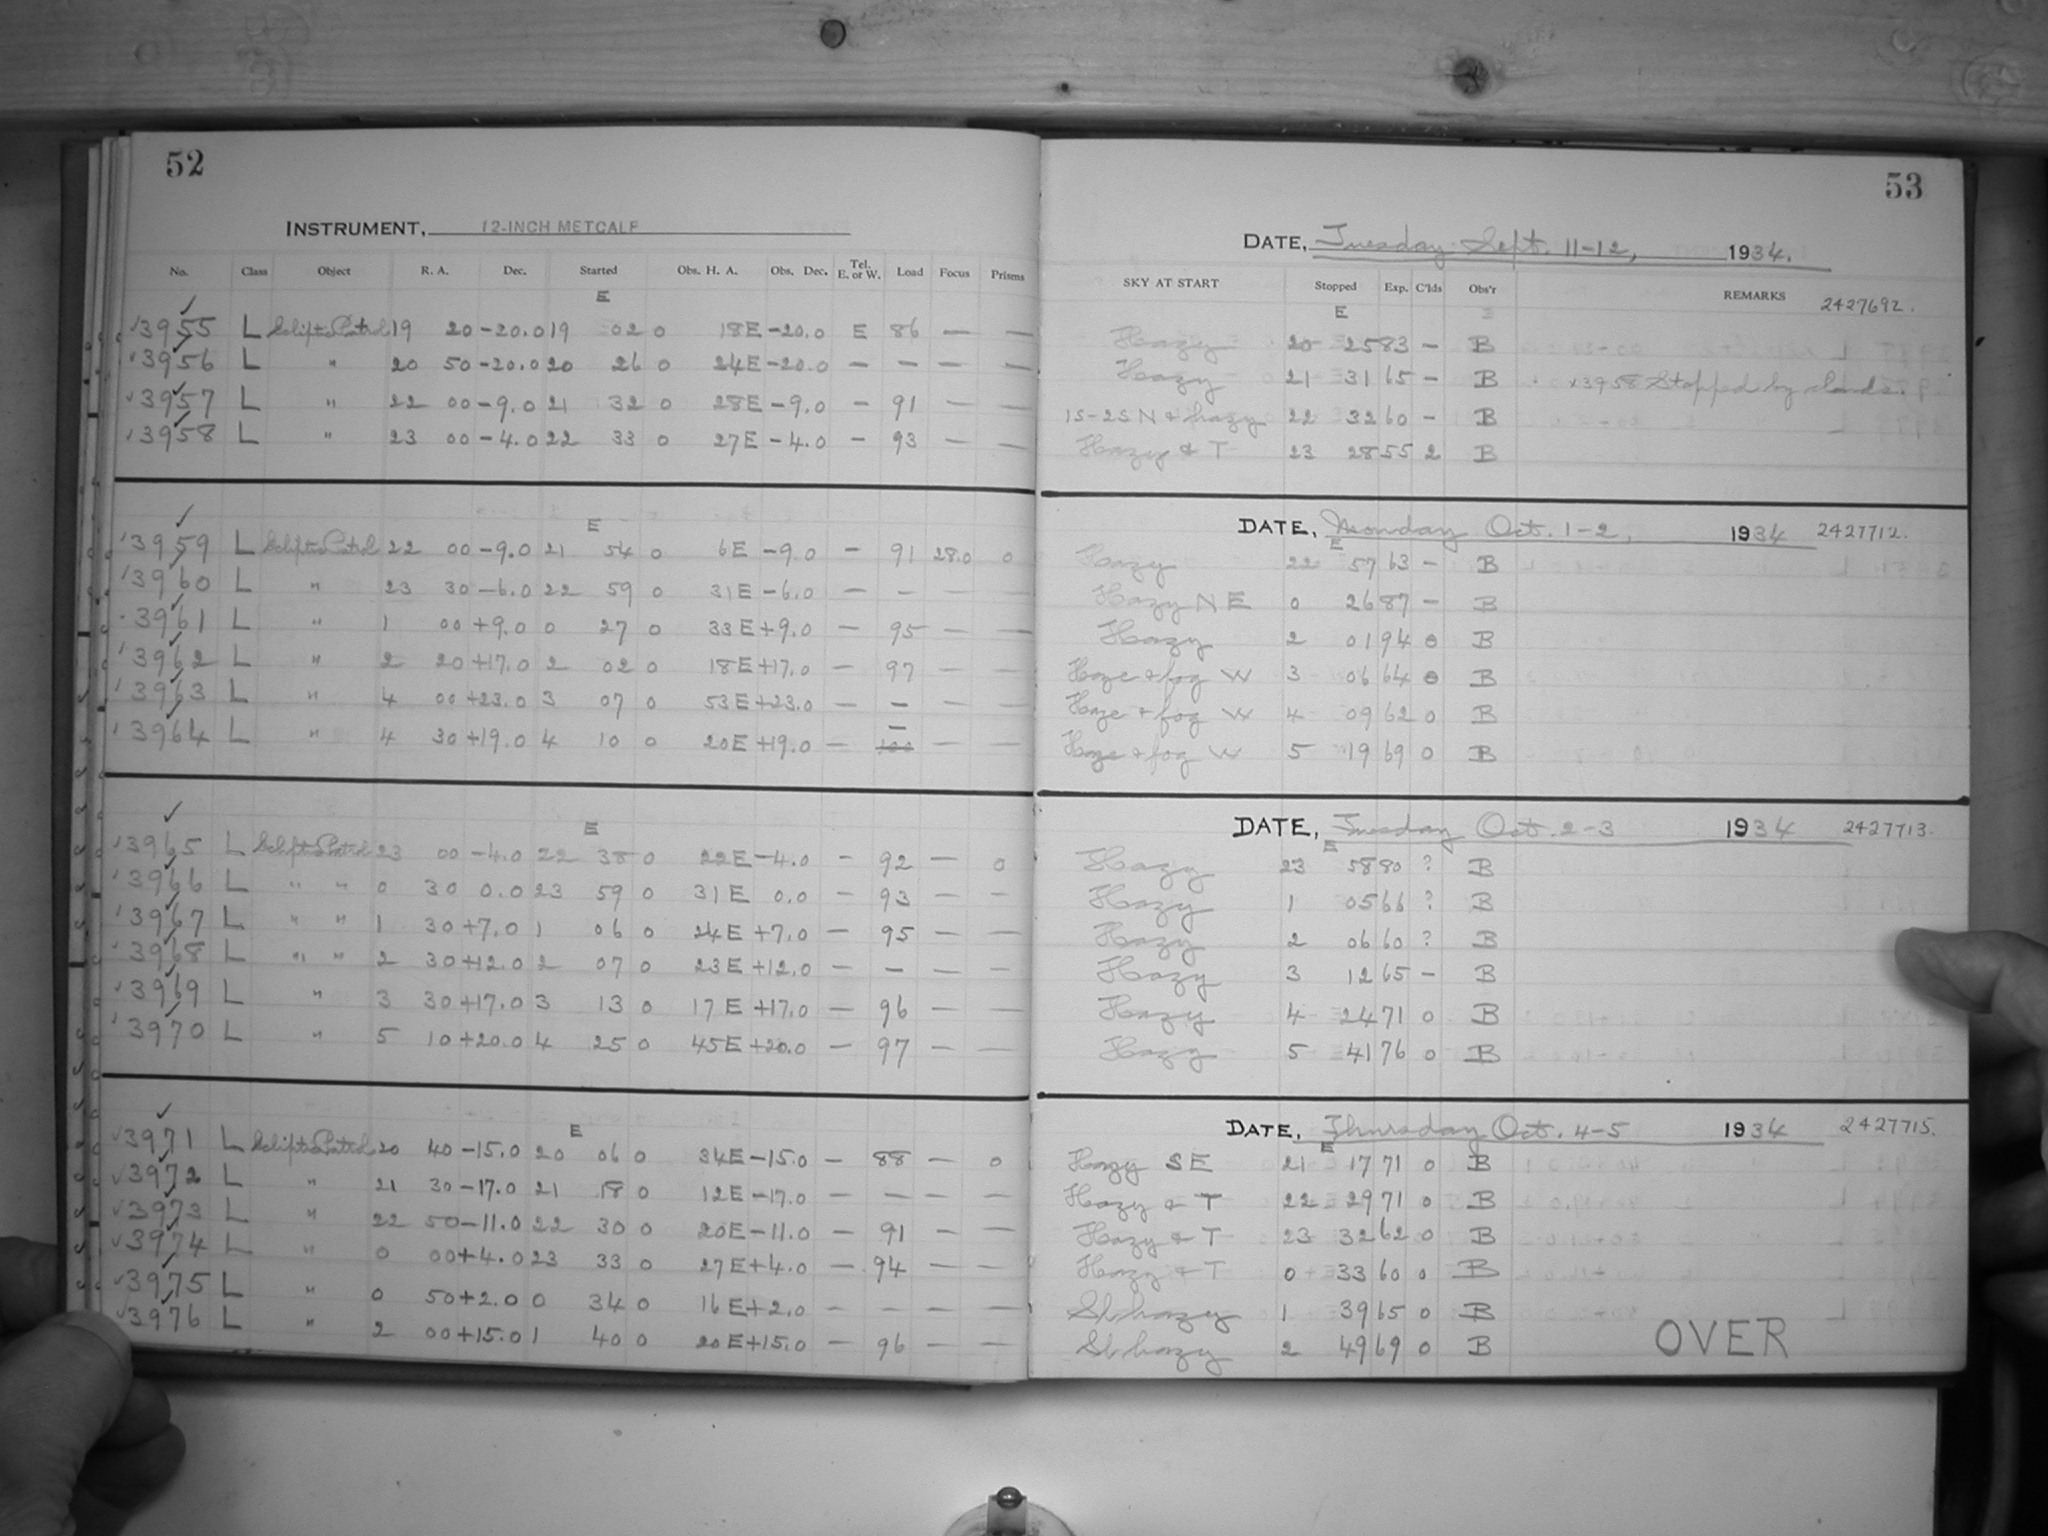 52
INSTRUMENT, 12-INCH METCALF
No. Class Object R. A. Dec. Started Obs. H. A. Obs. Dec. Tel. E. or W. Load Focus Prisms
E
3955 L Ecliptic Patrol 19 20 -20.0 19 02 0 18E -20.0 E 86 — —
3956 L " 20 50 -20.0 20 26 0 24E -20.0 — — — —
3957 L " 22 00 -9.0 21 32 0 28E -9.0 — 91 — —
3958 L " 23 00 -4.0 22 33 0 27E -4.0 — 93 — —
E
3959 L Ecliptic Patrol 22 00 -9.0 21 54 0 6E -9.0 — 91 28.0 0
3960 L " 23 30 -6.0 22 59 0 31E -6.0 — — — —
3961 L " 1 00 +9.0 0 27 0 33E +9.0 — 95 — —
3962 L " 2 20 +17.0 2 02 0 18E +17.0 — 97 — —
3963 L " 4 00 +23.0 3 07 0 53E +23.0 — — — —
3964 L " 4 30 +19.0 4 10 0 20E +19.0 — — — —
E
3965 L Ecliptic Patrol 23 00 -4.0 22 38 0 22E -4.0 — 92 — 0
3966 L " " 0 30 0.0 23 59 0 31E 0.0 — 93 — —
3967 L " " 1 30 +7.0 1 06 0 24E +7.0 — 95 — —
3968 L " " 2 30 +12.0 2 07 0 23E +12.0 — — — —
3969 L " 3 30 +17.0 3 13 0 17E +17.0 — 96 — —
3970 L " 5 10 +20.0 4 25 0 45E +20.0 — 97 — —
E
3971 L Ecliptic Patrol 20 40 -15.0 20 06 0 34E -15.0 — 88 — 0
3972 L " 21 30 -17.0 21 18 0 12E -17.0 — — — —
3973 L " 22 50 -11.0 22 30 0 20E -11.0 — 91 — —
3974 L " 0 00 +4.0 23 33 0 27E +4.0 — 94 — —
3975 L " 0 50 +2.0 0 34 0 16E +2.0 — — — —
3976 L " 2 00 +15.0 1 40 0 20E +15.0 — 96 — —
53
DATE, Tuesday Sept. 11-12, 1934.
SKY AT START Stopped Exp. C'lds Obs'r REMARKS 2427692.
E
Hazy 20 25 83 — B
Hazy 21 31 65 — B x3958 Stopped by clouds.
1S-2S N & hazy 22 32 60 — B
Hazy & T 23 28 55 2 B
DATE, Monday Oct. 1-2, 1934 2427712.
E
Hazy 22 57 63 — B
Hazy N E 0 26 87 — B
Hazy 2 01 94 0 B
Haze & fog W 3 06 64 0 B
Haze & fog W 4 09 62 0 B
Haze & fog W 5 19 69 0 B
DATE, Tuesday Oct. 2-3 1934 2427713.
E
Hazy 23 58 80 ? B
Hazy 1 05 66 ? B
Hazy 2 06 60 ? B
Hazy 3 12 65 — B
Hazy 4 24 71 0 B
Hazy 5 41 76 0 B
DATE, Thursday Oct. 4-5 1934 2427715.
E
Hazy SE 21 17 71 0 B
Hazy & T 22 29 71 0 B
Hazy & T 23 32 62 0 B
Hazy & T 0 33 60 0 B
Sl. hazy 1 39 65 0 B
Sl. hazy 2 49 69 0 B
OVER